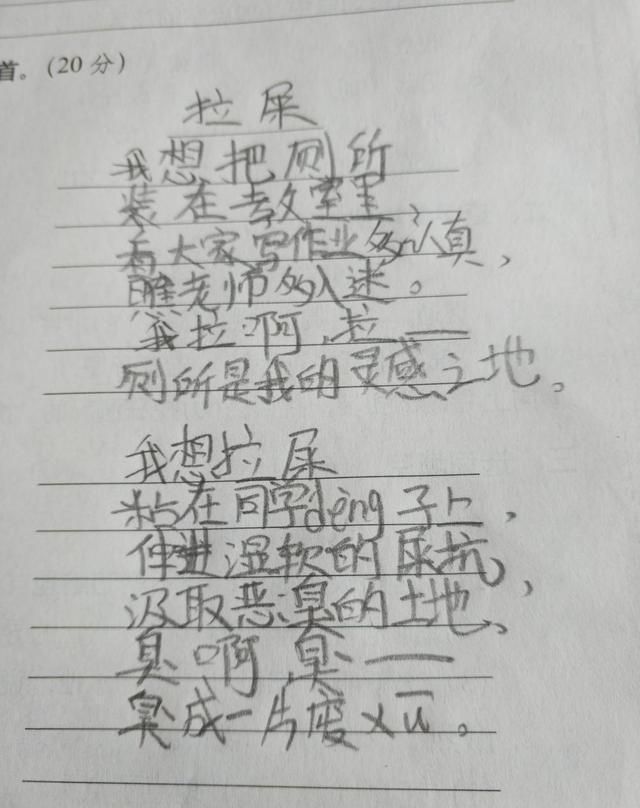 首。(20 分)
拉屎
我想把厕所
装在教室里
看大家写作业多认真,
瞧老师多入迷。
我拉啊,拉——
厕所是我的灵感之地。
我想拉尿
粘在同学dèng子上,
伸进湿软的尿坑,
汲取恶臭的土地、
臭啊,臭——
臭成一片废xū。